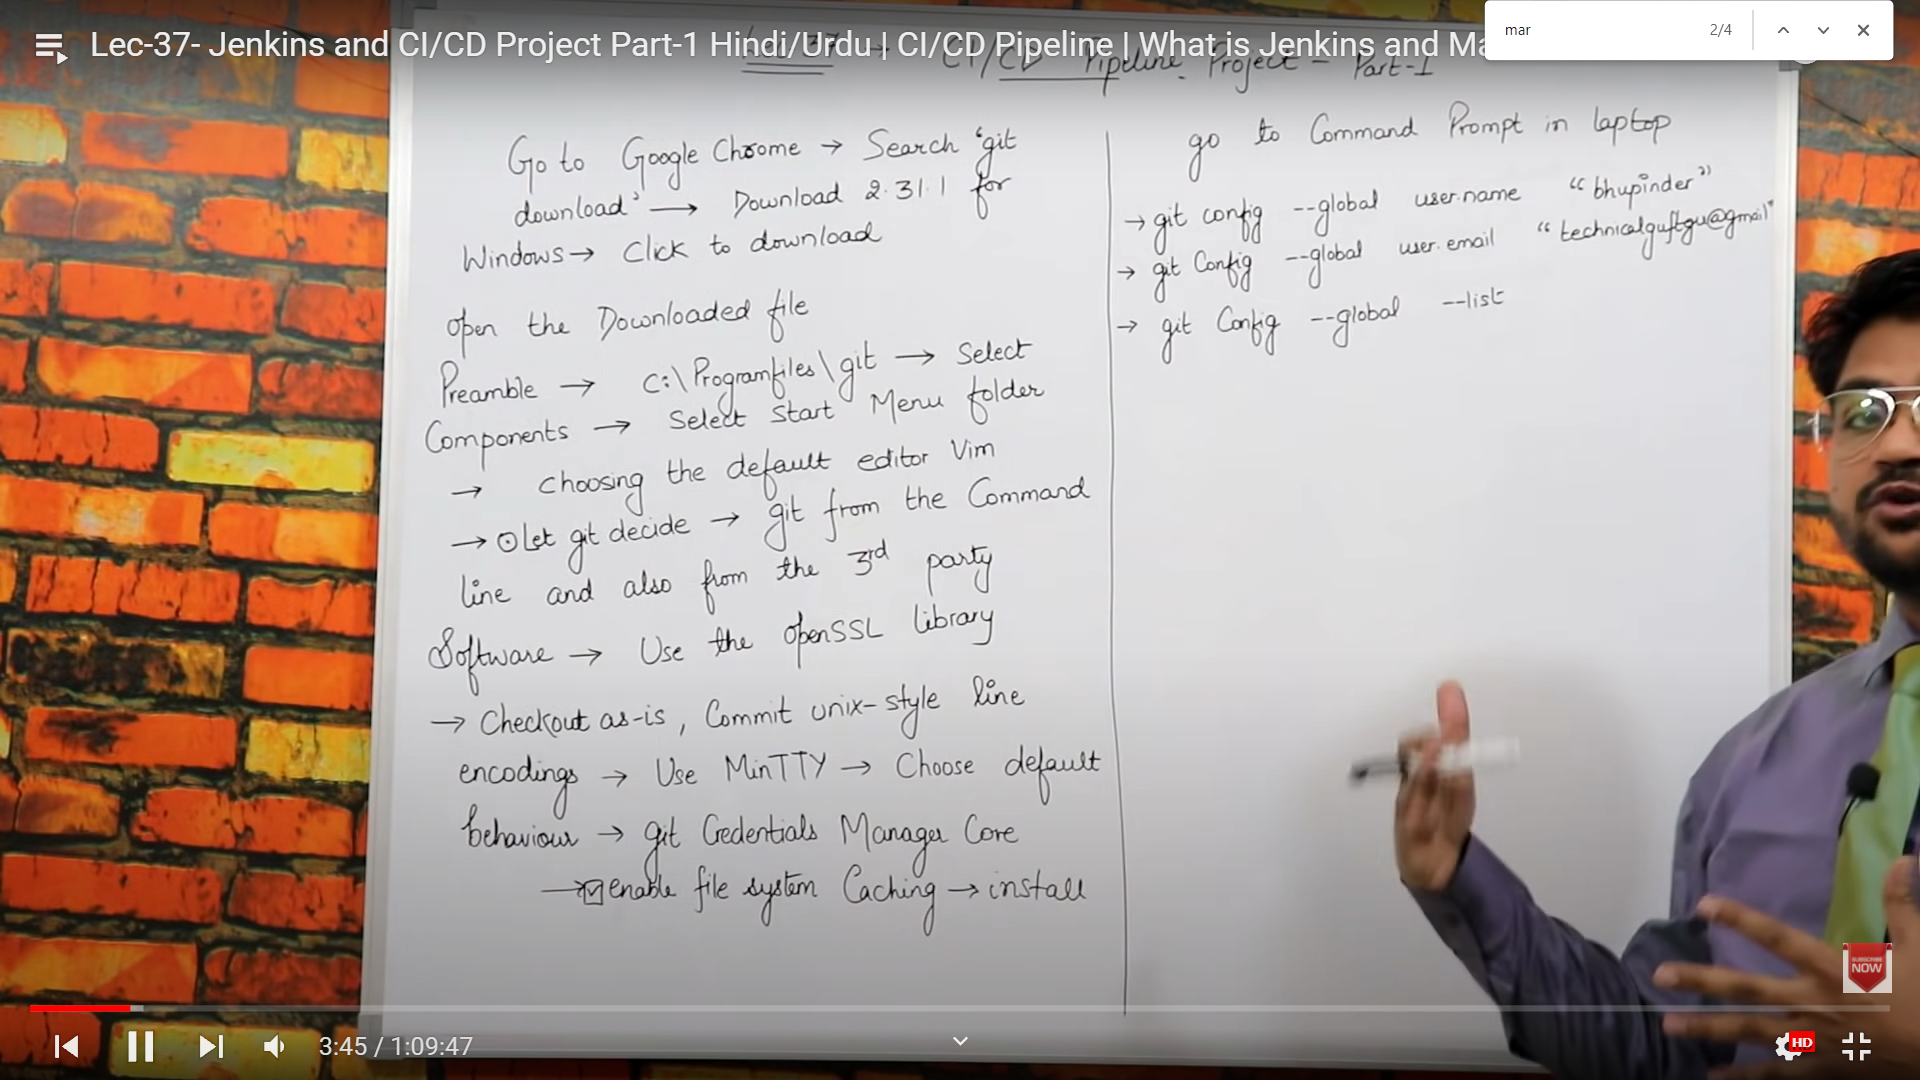 Lec-37- Jenkins and CI/CD Project Part-1 Hindi/Urdu | CI/CD Pipeline | What is Jenkins and Ma
mar 2/4
CI/CD Pipeline Project - Part-1
Go to Google Chrome → Search 'git
download' → Download 2.31.1 for
Windows → Click to download
open the Downloaded file
Preamble → C:\Programfiles\git → Select
Components → Select Start Menu folder
→ choosing the default editor Vim
→ ⊙ Let git decide → git from the Command
line and also from the 3rd party
Software → Use the openSSL library
→ Checkout as-is, Commit unix-style line
encodings → Use MinTTY → Choose default
behaviour → git Credentials Manager Core
→ ☑ enable file system Caching → install
go to Command Prompt in laptop
→ git config --global user.name "bhupinder"
→ git Config --global user.email "technicalguftgu@gmail"
→ git Config --global --list
SUBSCRIBE
NOW
3:45 / 1:09:47
HD